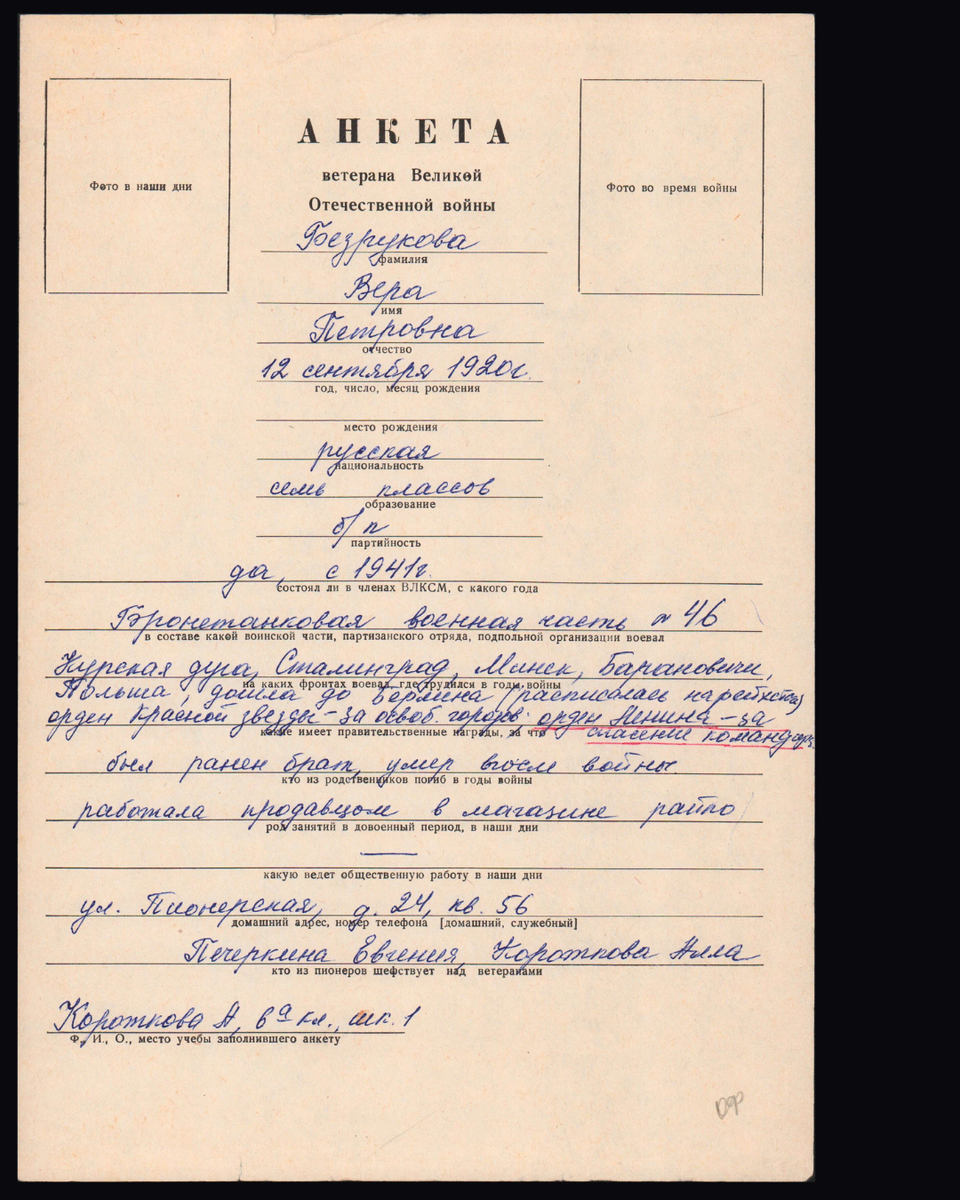 АНКЕТА
Фото в наши дни
ветерана Великой
Фото во время войны
Отечественной войны
Безрукова
фамилия
Вера
имя
Петровна
отчество
12 сентября 1920г.
год, число, месяц рождения
место рождения
русская
национальность
семь классов
образование
б/п
партийность
да, с 1941г.
состоял ли в членах ВЛКСМ, с какого года
Бронетанковая военная часть № 46
в составе какой воинской части, партизанского отряда, подпольной организации воевал
Курская дуга, Сталинград, Минск, Барановичи,
на каких фронтах воевал, где трудился в годы войны
Польша, дошла до Берлина (расписалась на рейхстаге)
орден Красной звезды - за освоб. городов; орден Ленина - за
какие имеет правительственные награды, за что
спасение командира
был ранен брат, умер после войны.
кто из родственников погиб в годы войны
работала продавцом в магазине райпо
род занятий в довоенный период, в наши дни
—
какую ведет общественную работу в наши дни
ул. Пионерская, д. 24, кв. 56
домашний адрес, номер телефона [домашний, служебный]
Печеркина Евгения, Короткова Алла
кто из пионеров шефствует над ветеранами
Короткова А, 6а кл., шк. 1
Ф., И., О., место учебы заполнившего анкету